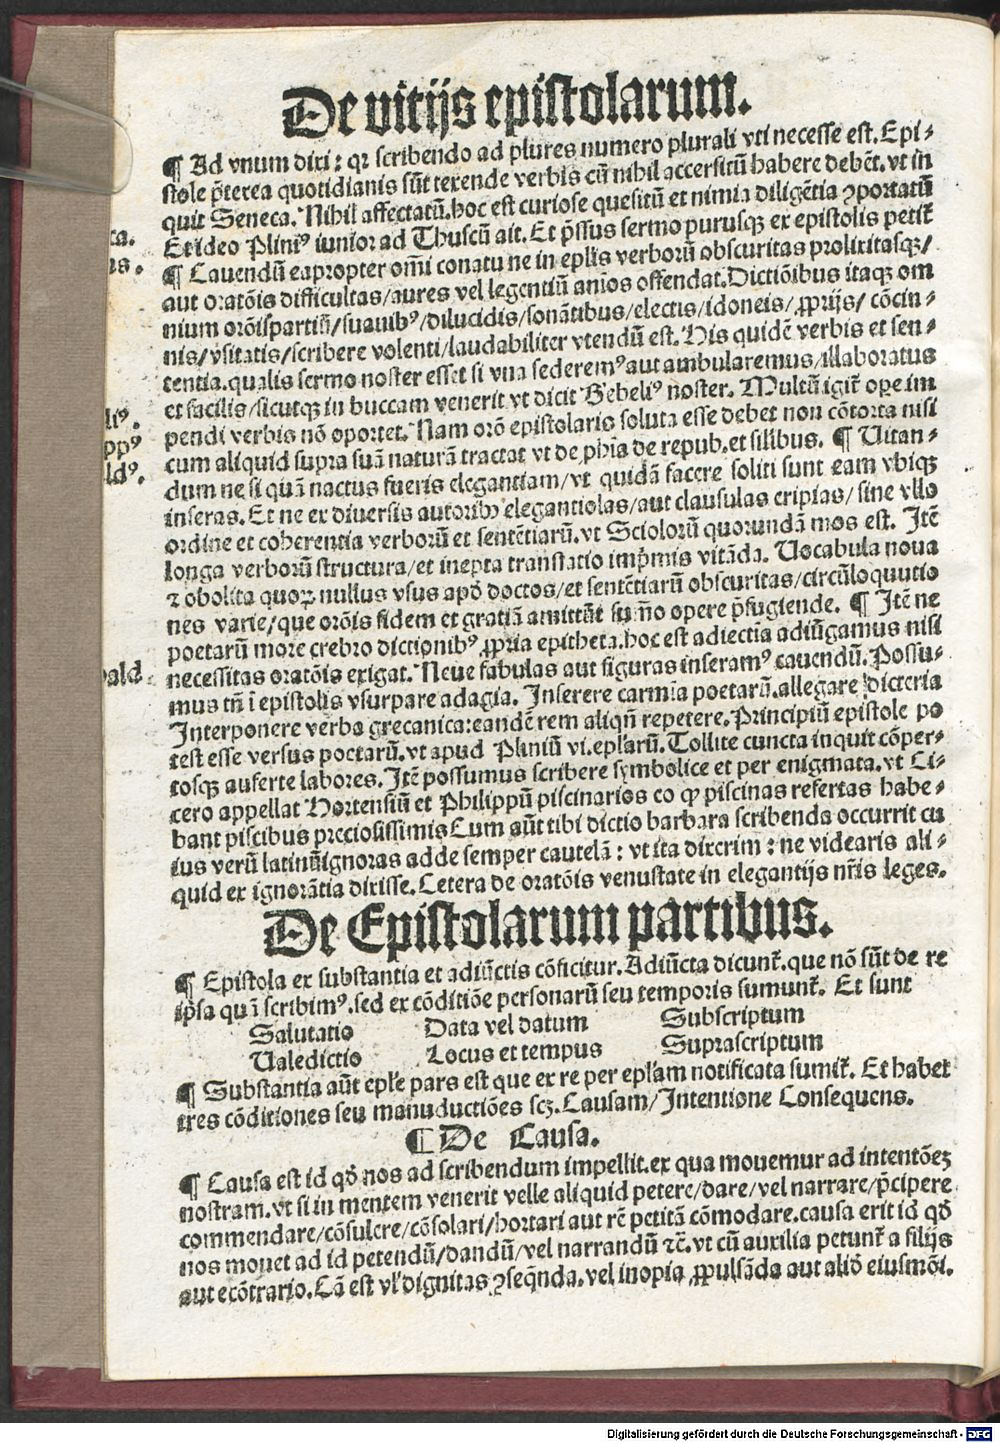 De vitijs epistolarum.
¶ Ad vnum dixi: qꝛ scribendo ad plures numero plurali vti necesse est. Epi⸗
stole p̄terea quotidianis sūt texende verbis cū nihil accersitū habere debēt. vt in
quit Seneca. Nihil affectatū. hoc est curiose quesitū et nimia diligētia ꝯportatū
Et ideo Pliniꝰ iunior ad Thuscū ait. Et p̄ssus sermo purusqꝫ ex epistolis petit̄
¶ Cauendū eapropter om̄i conatu ne in ep̄lis verborū obscuritas prolixitasqꝫ/
aut oratōis difficultas/aures vel legentiū aīos offendat. Dictiōibus itaqꝫ om
nium orōis partiū/suauibꝰ/dilucidis/sonātibus/electis/idoneis/ꝓprijs/ cōcin⸗
nis/vsitatis/scribere volenti/laudabiliter vtendū est. His quidē verbis et sen⸗
tentia. qualis sermo noster esset si vna sederemꝰ aut ambularemus/illaboratus
et facilis/sicutqꝫ in buccam venerit vt dicit Bebeliꝰ noster. Multū igit̄ oꝑe im
pendi verbis nō oportet. Nam orō epistolaris soluta esse debet non cōtorta nisi
cum aliquid supra suā naturā tractat vt de ph̄ia de repub. et sil̄ibus. ¶ Uitan⸗
dum ne si quā nactus fueris elegantiam/vt quidā facere soliti sunt eam vbiqꝫ
inseras. Et ne ex diuersis autoribꝰ elegantiolas/aut clausulas eripias/ sine vllo
ordine et coherentia verborū et sentētiarū. vt Sciolorū quorundā mos est. Itē
longa verborū structura/et inepta translatio imp̄mis vitāda. Uocabula noua
⁊ obolita quoꝝ nullus vsus apd̄ doctos/et sentētiarū obscuritas/circūloquutio
nes varie/que orōis fidem et gratiā amittūt su m̄o opere p̄fugiende. ¶ Itē ne
poetarū more crebro dictionibꝰ ꝓpria epitheta. hoc est adiectia adiūgamus nisi
necessitas oratōis exigat. Neue fabulas aut figuras inseramꝰ cauendū. Possu⸗
mus tn̄ ī epistolis vsurpare adagia. Inserere carmīa poetarū. allegare dicteria
Interponere verba grecanica: eandē rem aliqn̄ repetere. Principiū epistole po
test esse versus poetarū. vt apud Pliniū vi. ep̄larū. Tollite cuncta inquit cōper⸗
tosqꝫ auferte labores. Itē possumus scribere symbolice et per enigmata. vt Ci⸗
cero appellat Hortensiū et Philippū piscinarios eo ꝙ piscinas refertas habe⸗
bant piscibus preciosissimis Cum aūt tibi dictio barbara scribenda occurrit cu
ius verū latinū ignoras adde semper cautelā: vt ita dixerim: ne videaris ali⸗
quid ex ignorātia dixisse. Cetera de oratōis venustate in elegantijs nr̄is leges.
De Epistolarum partibus.
¶ Epistola ex substantia et adiūctis cōficitur. Adiūcta dicunt̄. que nō sūt de re
ip̄sa quā scribimꝰ. sed ex cōditiōe personarū seu temporis sumunt̄. Et sunt
Salutatio Data vel datum Subscriptum
Ualedictio Locus et tempus Suprascriptum
¶ Substantia aūt ep̄le pars est que ex re per ep̄lam notificata sumit̄. Et habet
tres cōditiones seu manuductiōes scꝫ. Causam/Intentione Consequens.
¶ De Causa.
¶ Causa est id qd̄ nos ad scribendum impellit. ex qua mouemur ad intentōeꝫ
nostram. vt si in mentem venerit velle aliquid petere/dare/vel narrare/p̄cipere
commendare/cōsulere/cōsolari/hortari aut rē petitā cōmodare. causa erit id qd̄
nos mouet ad id petendū/dandū/vel narrandū ⁊c̄. vt cū auxilia petunt̄ a filijs
aut ecōtrario. Cā est vl̄ dignitas ꝯseq̄nda. vel inopia ꝓpulsāda aut alid̄ eiusmōi.
ca.
rs.
liꝰ.
ppꝰ
ldꝰ.
vald.
Digitalisierung gefördert durch die Deutsche Forschungsgemeinschaft - DFG